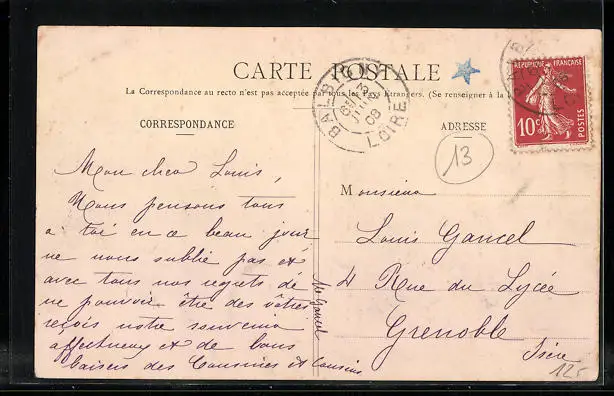 CARTE POSTALE
La Correspondance au recto n'est pas acceptée par tous les Pays Etrangers. (Se renseigner à la
CORRESPONDANCE
ADRESSE
RÉPUBLIQUE FRANÇAISE
10c
POSTES
BALBIGNY
3
JUIN
08
LOIRE
13
Mon cher Louis,
Nous pensons tous
a toi en ce beau jour
ne nous oublie pas et
avec tous nos regrets de
ne pouvoir être des vôtres
reçois notre souvenir
affectueux et de bons
baisers des Cousines et Cousins
M Gancel
Monsieur
Louis Gancel
4 Rue du Lycée
Grenoble
Isère
12